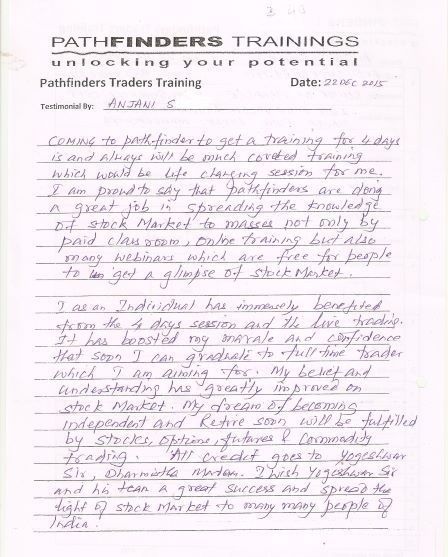 PATHFINDERS TRAININGS
unlocking your potential
Pathfinders Traders Training Date: 22 DEC 2015
Testimonial By: ANJANI S
COMING to pathfinder to get a training for 4 days
is and always will be much coveted training
which would be life changing session for me.
I am proud to say that pathfinders are doing
a great job in spreading the knowledge
of stock Market to masses not only by
paid class room, online training but also
many webinars which are free for people
to get a glimpse of stock Market.
I as an Individual has immensely benefited
from the 4 days session and the live trading.
It has boosted my morale and confidence
that soon I can graduate to full time trader
which I am aiming for. My belief and
understanding has greatly improved on
stock Market. My dream of becoming
independent and Retire soon will be fulfilled
by stocks, options, futures & commodity
trading. All credit goes to Yogeshwar
Sir, Dharmistha Madam. I wish Yogeshwar Sir
and his team a great success and spread the
light of stock Market to many many people of
India.